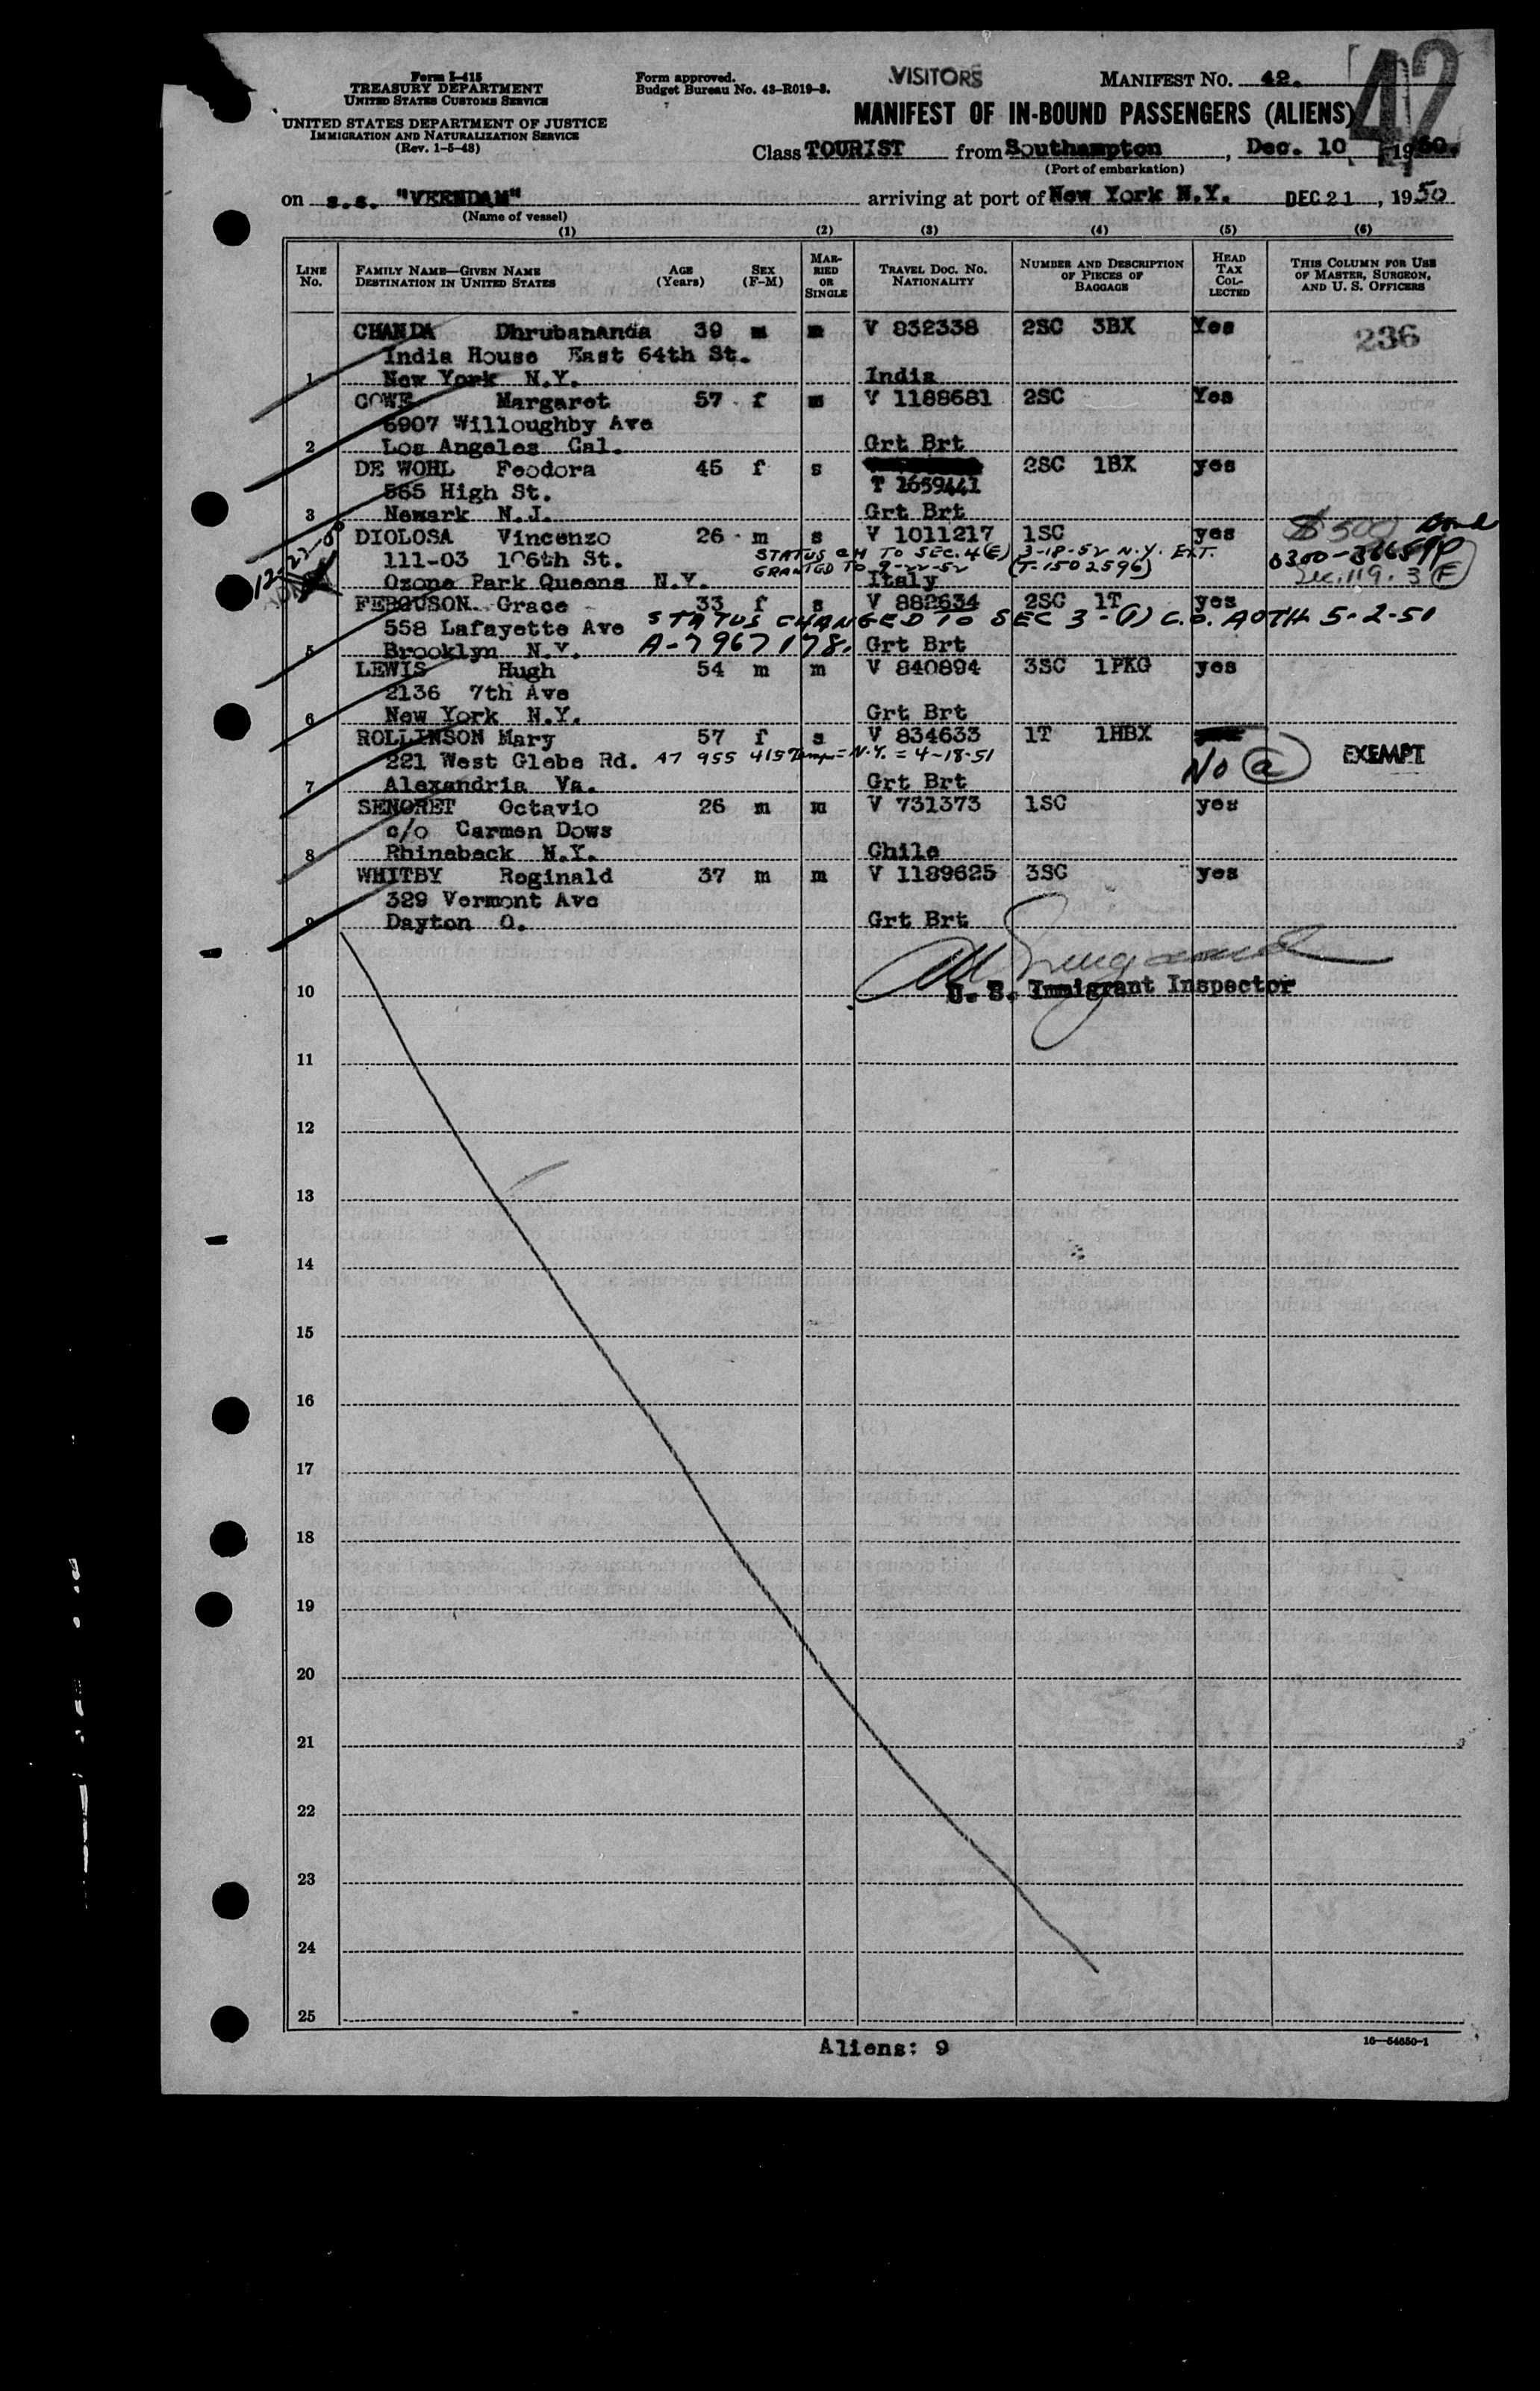 Form I-415
TREASURY DEPARTMENT
UNITED STATES CUSTOMS SERVICE
UNITED STATES DEPARTMENT OF JUSTICE
IMMIGRATION AND NATURALIZATION SERVICE
(Rev. 1-5-48)
Form approved.
Budget Bureau No. 43-R019-3.
VISITORS
MANIFEST NO. 42.
42
MANIFEST OF IN-BOUND PASSENGERS (ALIENS)
Class TOURIST from Southampton, Dec. 10, 1950.
(Port of embarkation)
on s.s. "VEENDAM" arriving at port of New York N.Y. DEC 21, 1950
(Name of vessel)
(1) (2) (3) (4) (5) (6)
LINE NO. FAMILY NAME—GIVEN NAME DESTINATION IN UNITED STATES AGE (Years) SEX (F-M) MARRIED OR SINGLE TRAVEL DOC. NO. NATIONALITY NUMBER AND DESCRIPTION OF PIECES OF BAGGAGE HEAD TAX COLLECTED THIS COLUMN FOR USE OF MASTER, SURGEON, AND U. S. OFFICERS
CHANDA Dhrubananda 39 m m V 832338 2SC 3BX Yes 236
India House East 64th St.
1 New York N.Y. India
COWE Margaret 57 f m V 1188681 2SC Yes
6907 Willoughby Ave
2 Los Angeles Cal. Grt Brt
DE WOHL Feodora 45 f s 2SC 1BX yes
565 High St. T 1659441
3 Newark N.J. Grt Brt
DIOLOSA Vincenzo 26 m s V 1011217 1SC yes $500 Bond
111-03 106th St. STATUS CH TO SEC. 4(E) 3-18-52 N.Y. EXT.
GRANTED TO 9-22-52 (T-1502596)
Ozone Park Queens N.Y. Italy Sec. 119. 3 (F)
FERGUSON Grace 33 f s V 882634 2SC 1T yes
558 Lafayette Ave STATUS CHANGED TO SEC 3-(1) C.O. AUTH 5-2-51
5 Brooklyn N.Y. A-7967178. Grt Brt
LEWIS Hugh 54 m m V 840894 3SC 1PKG yes
2136 7th Ave
6 New York N.Y. Grt Brt
ROLLINSON Mary 57 f s V 834633 1T 1HBX
221 West Glebe Rd. A7 955 415 Temp = N.Y. = 4-18-51 No (a) EXEMPT
7 Alexandria Va. Grt Brt
SENORET Octavio 26 m m V 731373 1SC yes
c/o Carmen Dows
8 Rhinebeck N.Y. Chile
WHITBY Reginald 37 m m V 1189625 3SC yes
329 Vermont Ave
9 Dayton O. Grt Brt
U. S. Immigrant Inspector
10
11
12
13
14
15
16
17
18
19
20
21
22
23
24
25
Aliens: 9
16—54650-1